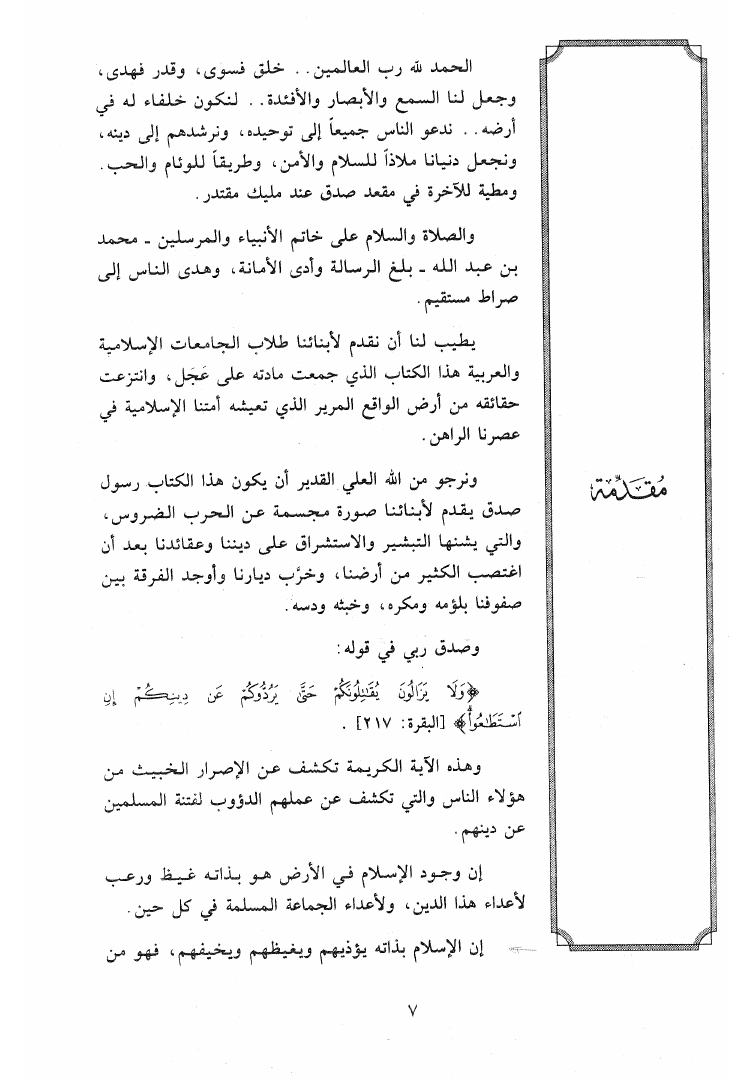 مُقَدِّمَة
الحمد لله رب العالمين.. خلق فسوى، وقدر فهدى،
وجعل لنا السمع والأبصار والأفئدة.. لنكون خلفاء له في
أرضه.. ندعو الناس جميعاً إلى توحيده، ونرشدهم إلى دينه،
ونجعل دنيانا ملاذاً للسلام والأمن، وطريقاً للوئام والحب.
ومطية للآخرة في مقعد صدق عند مليك مقتدر.
والصلاة والسلام على خاتم الأنبياء والمرسلين ـ محمد
بن عبد الله ـ بلغ الرسالة وأدى الأمانة، وهدى الناس إلى
صراط مستقيم.
يطيب لنا أن نقدم لأبنائنا طلاب الجامعات الإسلامية
والعربية هذا الكتاب الذي جمعت مادته على عَجَل، وانتزعت
حقائقه من أرض الواقع المرير الذي تعيشه أمتنا الإسلامية في
عصرنا الراهن.
ونرجو من الله العلي القدير أن يكون هذا الكتاب رسول
صدق يقدم لأبنائنا صورة مجسمة عن الحرب الضروس،
والتي يشنها التبشير والاستشراق على ديننا وعقائدنا بعد أن
اغتصب الكثير من أرضنا، وخرَّب ديارنا وأوجد الفرقة بين
صفوفنا بلؤمه ومكره، وخبثه ودسه.
وصدق ربي في قوله:
﴿وَلَا يَزَالُونَ يُقَٰتِلُونَكُمْ حَتَّىٰ يَرُدُّوكُمْ عَن دِينِكُمْ إِنِ
ٱسْتَطَٰعُوا۟ۚ﴾ [البقرة: ٢١٧] .
وهذه الآية الكريمة تكشف عن الإصرار الخبيث من
هؤلاء الناس والتي تكشف عن عملهم الدؤوب لفتنة المسلمين
عن دينهم.
إن وجود الإسلام في الأرض هو بذاته غيظ ورعب
لأعداء هذا الدين، ولأعداء الجماعة المسلمة في كل حين.
إن الإسلام بذاته يؤذيهم ويغيظهم ويخيفهم، فهو من
٧